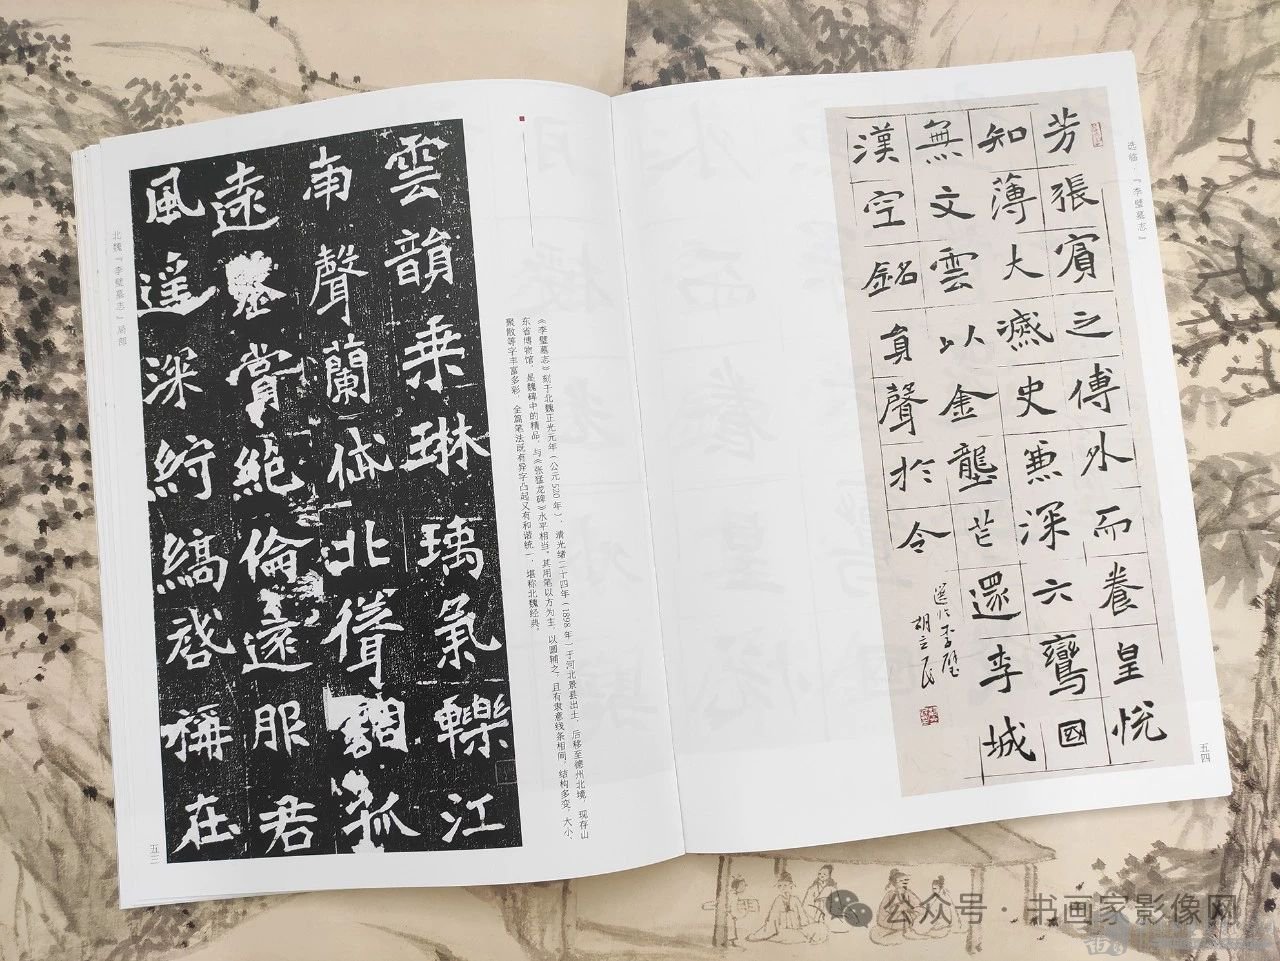 雲韻乗琳瑀氣轢江
南聲蘭北聳調孤
遠鑒賞絕倫遠服君
風遥深紵縞啓稱在
北魏『李璧墓志』局部
五三
《李璧墓志》刻于北魏正光元年（公元520年），清光绪二十四年（1898年）于河北景县出土，后移至德州北境，现存山
东省博物馆，是魏碑中的精品，与《张猛龙碑》水平相当。其用笔以方为主，以圆辅之，且有隶意线条相间，结构多变，大小、
聚散等字丰富多彩，全篇笔法既有异字凸起又有和谐统一，堪称北魏经典。
选临『李璧墓志』
五四
芳張賓之傅外而養皇悦
知薄大史兼深六鸞國
無文雲以金壟芒還李城
漢空銘身聲於令
選临李璧
胡立民
公众号·书画家影像网